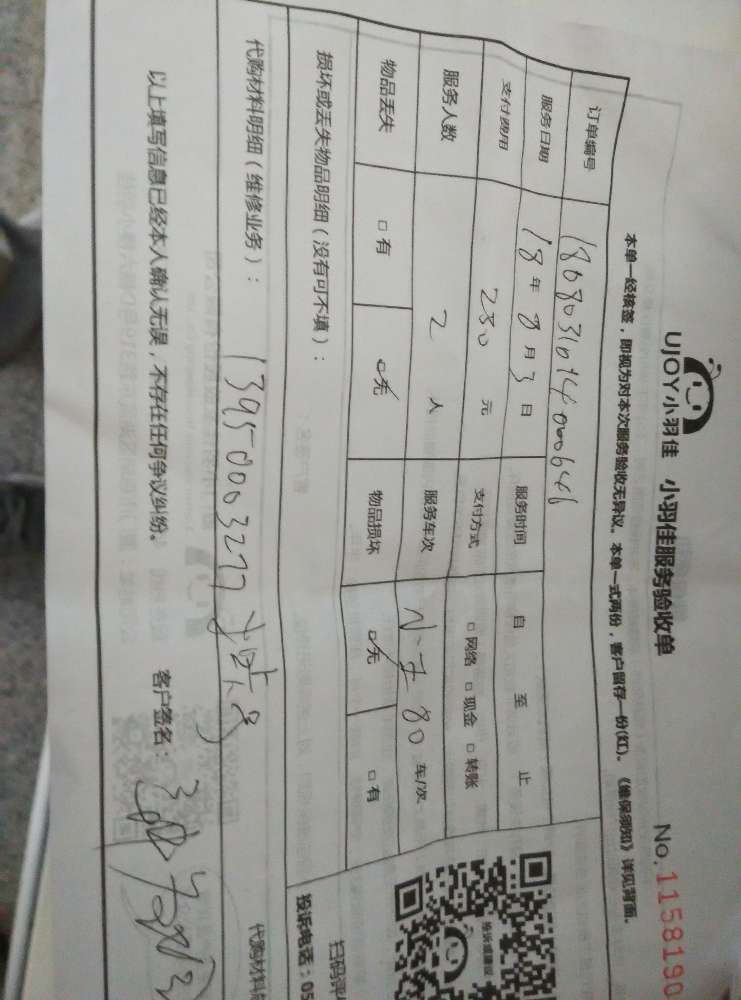 UJOY小羽佳 小羽佳服务验收单 No.1158190
本单一经核签，即视为对本次服务验收无异议。本单一式两份，客户留存一份(红)。《维保须知》详见背面。
订单编号
服务日期 18年8月3日 服务时间 自 至 止
支付费用 280元 支付方式 □网络 □现金 □转账
服务人数 2人 服务车次 80车/次
物品丢失 □有 □无 物品损坏 □无 □有
损坏或丢失物品明细（没有可不填）：
代购材料明细（维修业务）： 13950003277
以上填写信息已经本人确认无误，不存在任何争议纠纷。 客户签名：
投诉电话：05
代购材料